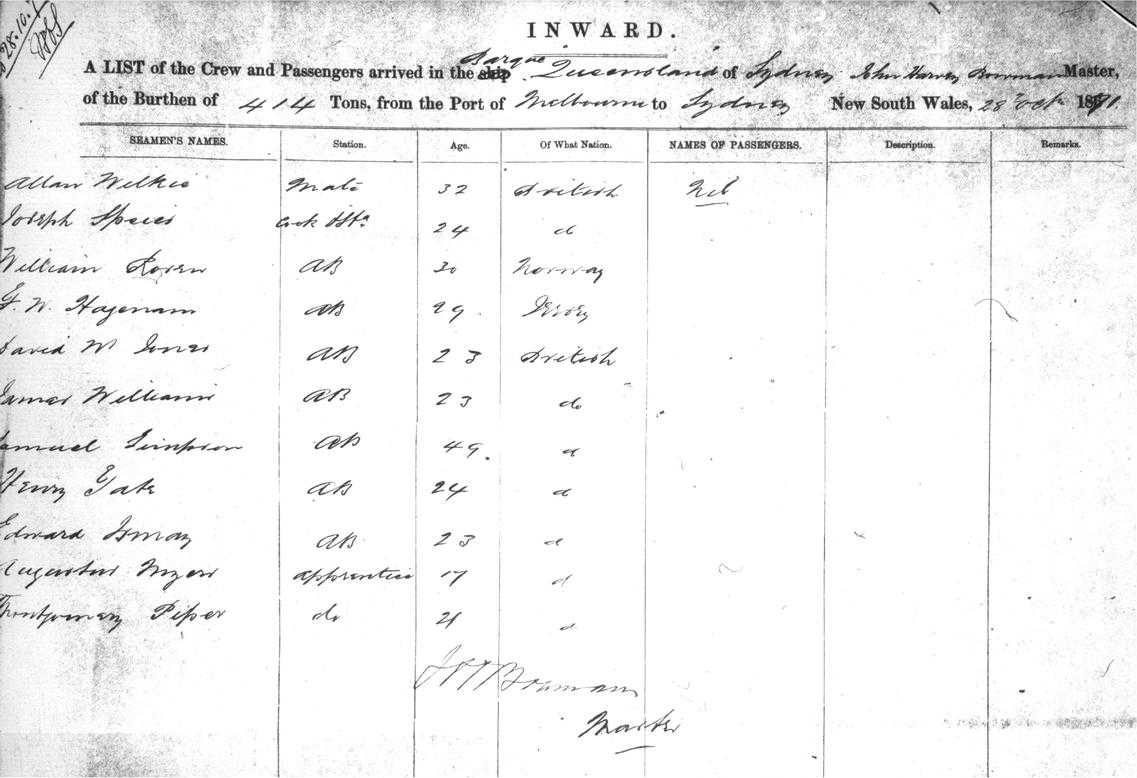 28.10.
INWARD.
A LIST of the Crew and Passengers arrived in the ship Barque Queensland of Sydney John Harvey Bowman Master,
of the Burthen of 414 Tons, from the Port of Melbourne to Sydney New South Wales, 28 Oct 1871
SEAMEN'S NAMES. Station. Age. Of What Nation. NAMES OF PASSENGERS. Description. Remarks.
Allan Wilkie Mate 32 British Nil
Joseph Cook 24 d
William AB 30 Norway
AB 29
David Jones AB 23 British
James Williams AB 23 do
Samuel Simpson AB 49. d
Henry AB 24 d
Edward Ismay AB 23 d
Augustus Myers apprentice 17 d
Montgomery Piper do 21 d
Bowman
Master